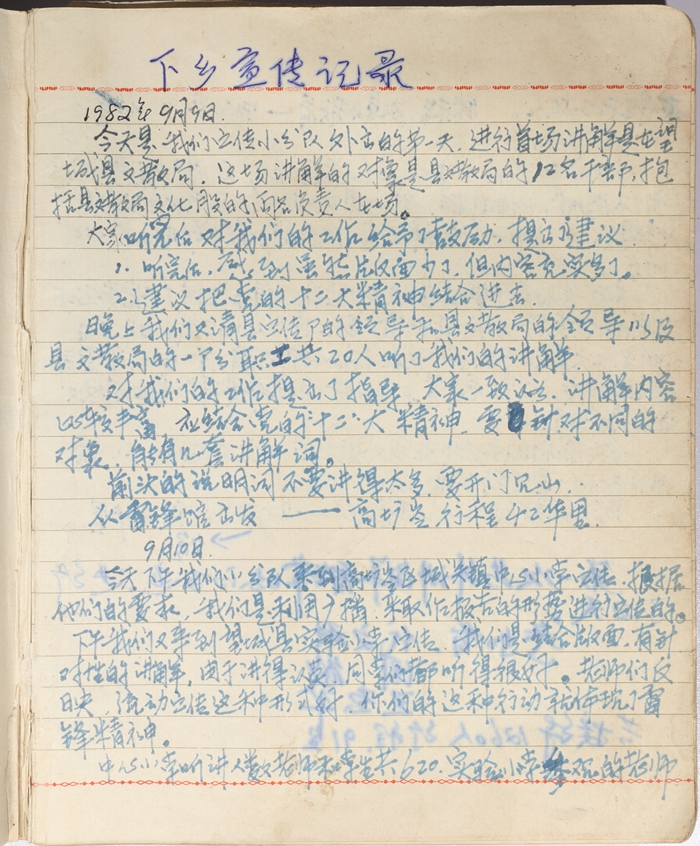 下乡宣传记录
1982年9月9日.
今天是我们宣传小分队外出的第一天,进行首场讲解是在望
城县文教局.这场讲解的对象是县文教局的12名干部,包
括县文教局文化股的两名负责人在场。
大家听完后对我们的工作给予了鼓励,提出了建议
1.听完后,感到虽然版面少了,但内容充实多了。
2.建议把党的十二大精神结合进去.
晚上我们又请县宣传部的领导和县文教局的领导以及
县文教局的一部分职工共20人听了我们的讲解.
对我们的工作提出了指导,大家一致认为,讲解内容
比较丰富,应结合党的"十二"大精神.要针对不同的
对象,能有几套讲解词。
前头的说明词不要讲得太多,要开门见山.
从雷锋馆出发——高圹岑行程42华里.
9月10日.
今天下午我们小分队来到高圹岑区城关镇中心小学宣传.根据
他们的要求,我们是利用广播,采取作报告的形势进行宣传的。
下午我们又来到望城县实验小学宣传.我们是结合版面,有针
对性的讲解,由于讲得认真,同学们都听得很好。老师们反
映,流动宣传这种形式好,你们的这种行动就体现了雷
锋精神。
中心小学听讲人数老师和学生共620.实验小学参观的老师